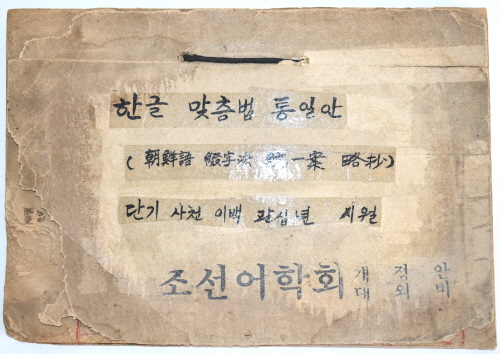 한글 맞춤법 통일안
( 朝鮮語 綴字法 統一案 略抄)
단기 사천 이백 팔십년 시월
조선어학회
개 정 안
대 외 비